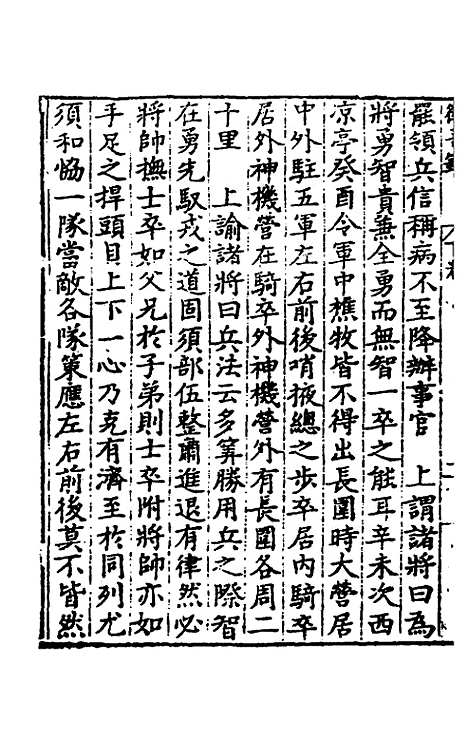 罷領兵信稱病不至降辦事官　上謂諸將曰為
將勇智貴兼全勇而無智一卒之能耳辛未次西
凉亭癸酉令軍中樵牧皆不得出長圍時大營居
中外駐五軍左右前後哨掖總之步卒居内騎卒
居外神機營在騎卒外神機營外有長圍各周二
十里　上諭諸將曰兵法云多筭勝用兵之際智
在勇先馭戎之道固須部伍整肅進退有律然必
將帥撫士卒如父兄於子弟則士卒附將帥亦如
手足之捍頭目上下一心乃克有濟至於同列尤
須和恊一隊當敵各隊策應左右前後莫不皆然